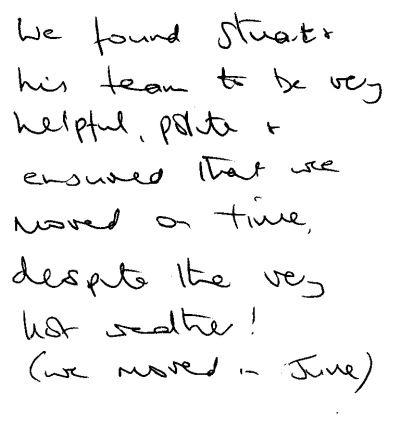 We found Stuart +
his team to be very
helpful, polite +
ensured that we
moved on time,
despite the very
hot weather!
(we moved in June)